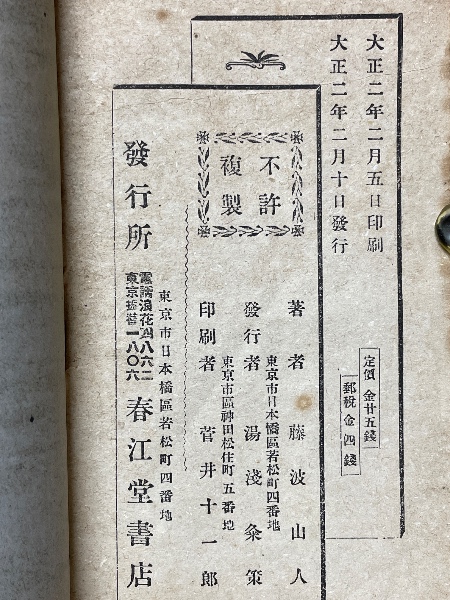 大正二年二月五日印刷
大正二年二月十日發行
定價金廿五錢
郵稅金四錢
不許
複製
著者 藤波山人
東京市日本橋區若松町四番地
發行者 湯淺粂策
東京市區神田松住町五番地
印刷者 菅井十一郎
東京市日本橋區若松町四番地
發行所 春江堂書店
電話浪花四八六二
東京振替一八〇六